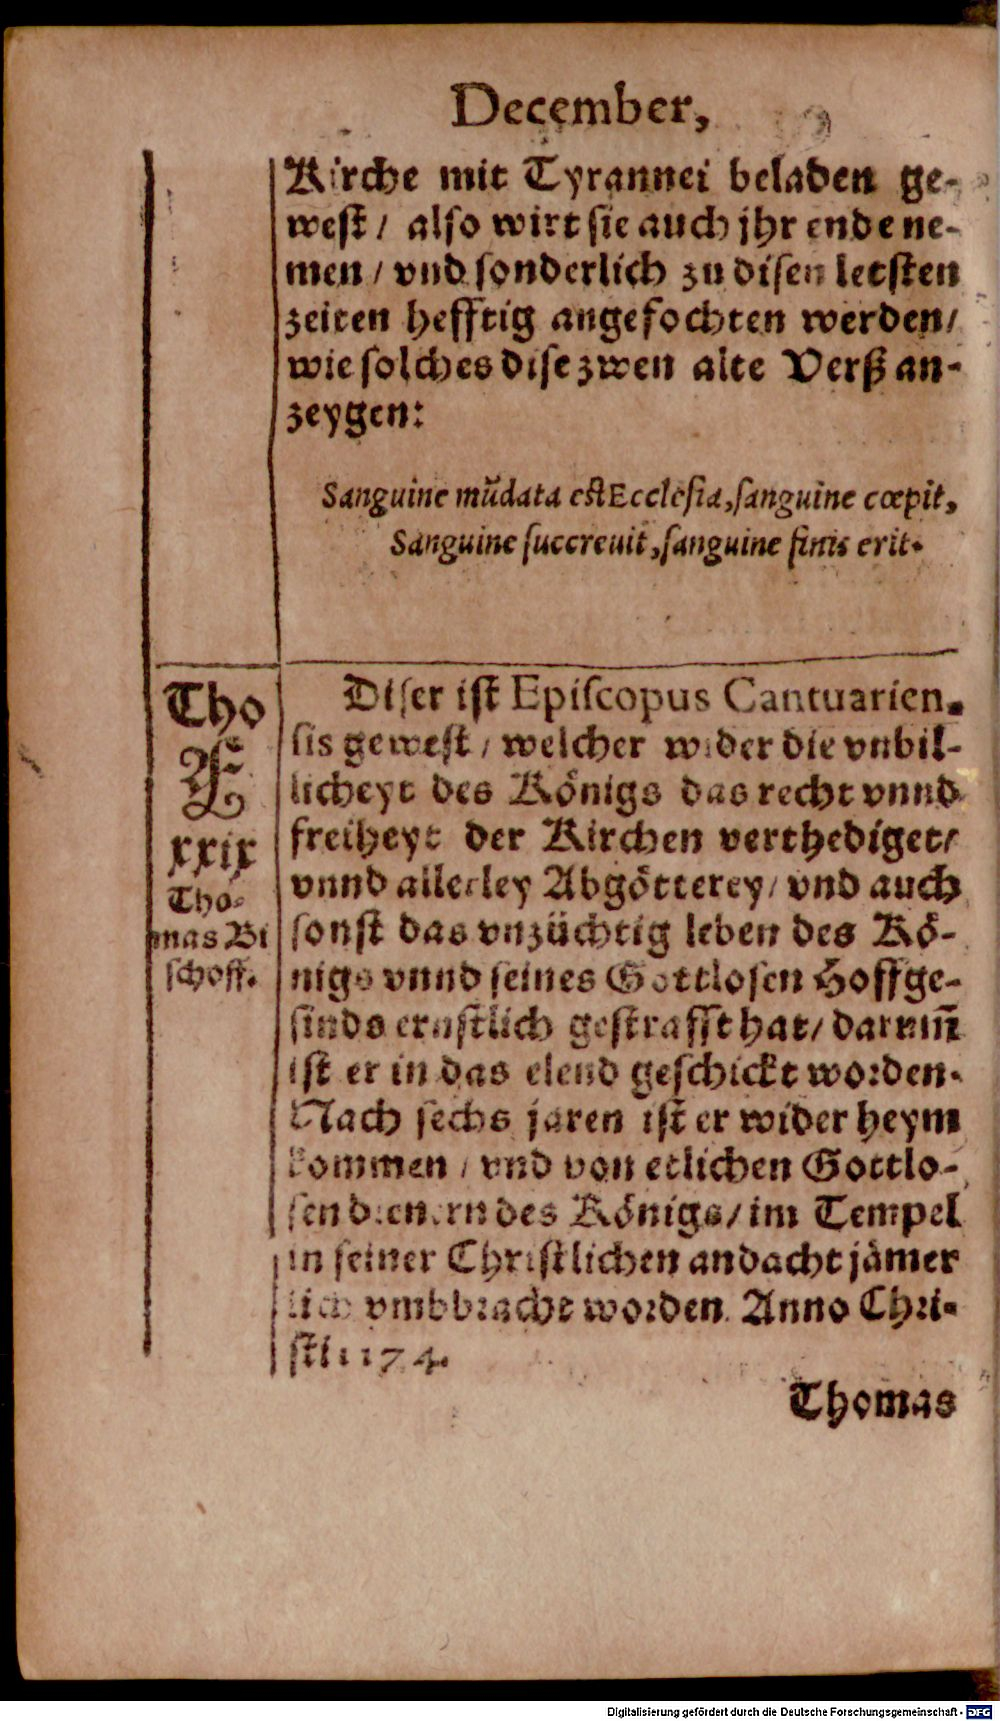 December,
Kirche mit Tyrannei beladen ge-
west / also wirt sie auch jhr ende ne-
men / vnd sonderlich zu disen letsten
zeiten hefftig angefochten werden /
wie solches dise zwen alte Verß an-
zeygen:
Sanguine mũdata est Ecclesia, sanguine cœpit,
Sanguine succreuit, sanguine finis erit.
Tho
Æ
xxix
Tho-
mas Bi
schoff.
Diser ist Episcopus Cantuarien-
sis gewest / welcher wider die vnbil-
licheyt des Königs das recht vnnd
freiheyt der Kirchen verthediget /
vnnd allerley Abgötterey / vnd auch
sonst das vnzüchtig leben des Kö-
nigs vnnd seines Gottlosen Hoffge-
sinds ernstlich gestrafft hat / darum̃
ist er in das elend geschickt worden.
Nach sechs jaren ist er wider heym
kommen / vnd von etlichen Gottlo-
sen dienern des Königs / im Tempel
in seiner Christlichen andacht jämer
lich vmbbracht worden. Anno Chri-
sti 1174.
Thomas
Digitalisierung gefördert durch die Deutsche Forschungsgemeinschaft - DFG